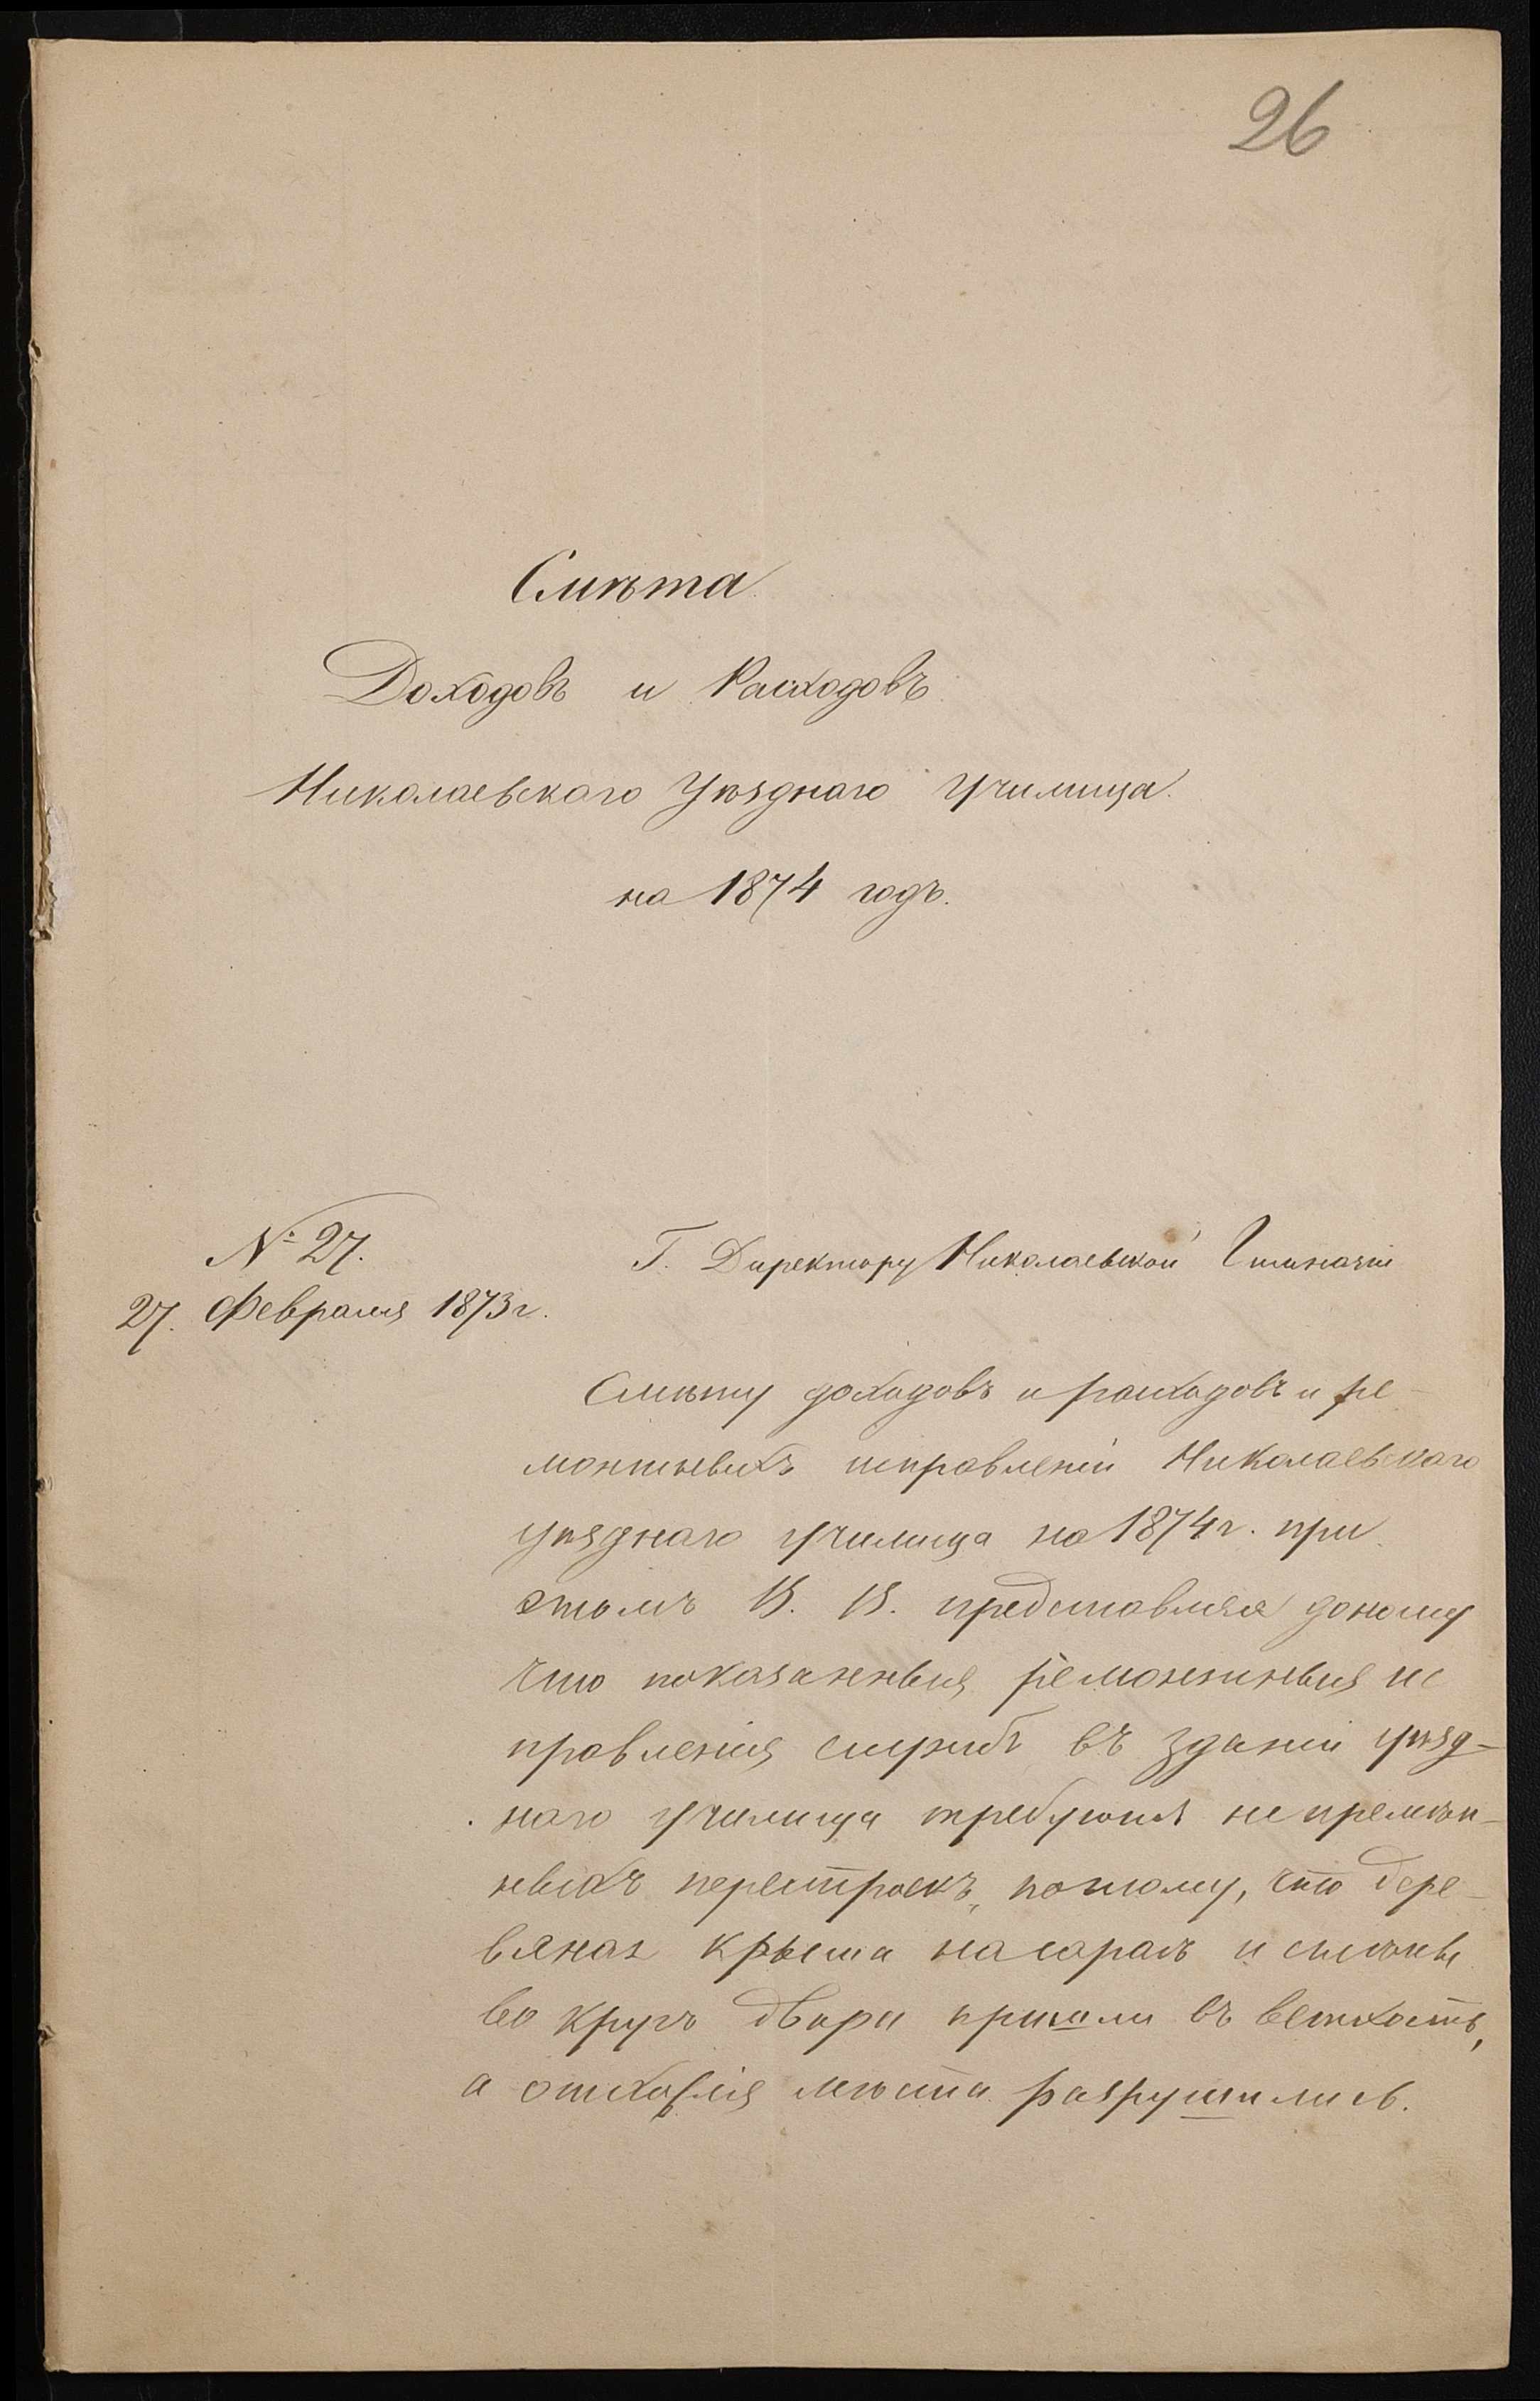 26
Смѣта
Доходовъ и Расходовъ
Николаевскаго Уѣзднаго Училища
на 1874 годъ.
№ 27.
27. Февраля 1873 г.
Г. Директору Николаевской Гимназіи
Смѣту доходовъ и расходовъ и ре-
монтныхъ исправленій Николаевскаго
уѣзднаго училища на 1874 г. при
этомъ В. В. представляя доношу
что показанныя ремонтныя ис
правленія службъ въ зданіи уѣзд-
наго училища требуютъ непремѣн-
ныхъ перестроекъ, потому, что дере-
вяная крыша на сараѣ и стѣны
во кругъ двора пришли въ ветхость,
а отхожія мѣста разрушились.